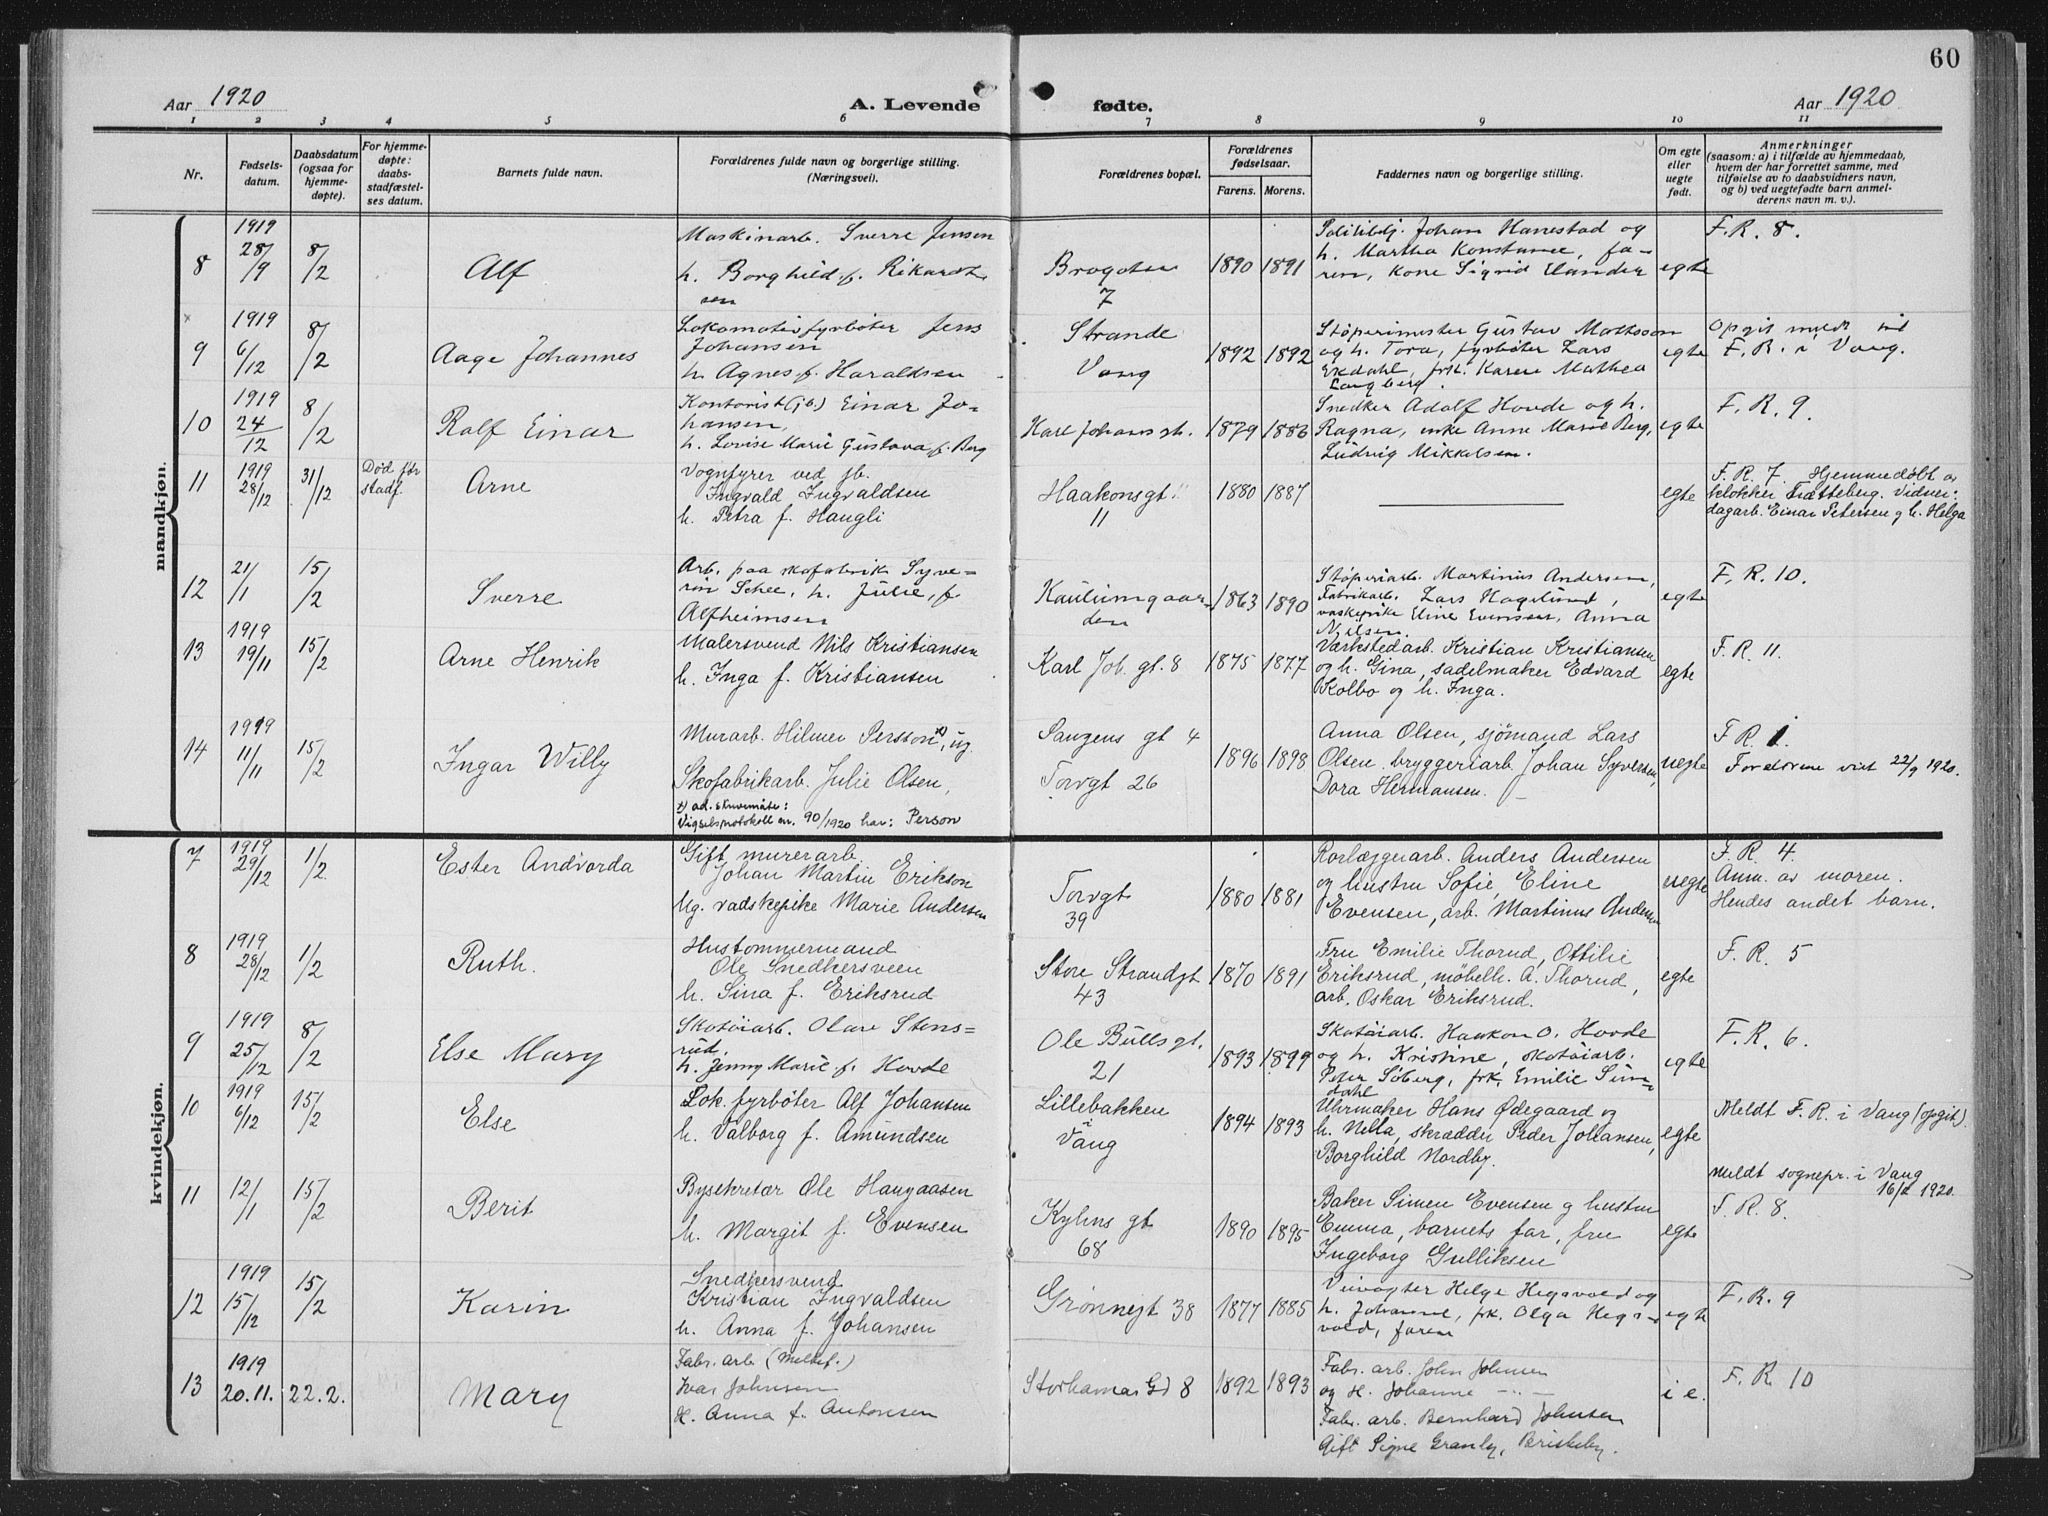 60
Aar 1920
A. Levende fødte.
Aar 1920
1 2 3 4 5 6 7 8 9 10 11
Nr.
Fødsels-
datum.
Daabsdatum
(ogsaa for
hjemme-
døpte).
For hjemme-
døpte:
daabs-
stadfæstel-
ses datum.
Barnets fulde navn.
Forældrenes fulde navn og borgerlige stilling.
(Næringsvei).
Forældrenes bopæl.
Forældrenes
fødselsaar.
Farens. Morens.
Faddernes navn og borgerlige stilling.
Om egte
eller
uegte
født.
Anmerkninger
(saasom: a) i tilfælde av hjemmedaab,
hvem der har forrettet samme, med
tilføielse av to daabsvidners navn,
og b) ved uegtefødte barn anmel-
derens navn m. v.).
mandkjøn.
8
1919
28/9
8/2
Alf
Maskinarb. Sverre Jensen
h. Borghild f. Rikardt
sen
Brogoten
7
1890 1891
Politibtj. Johan Hanestad og
h. Martha Konstanse, fa-
ren, kone Sigrid Elander
egte
F. R. 8.
9
1919
6/12
8/2
Aage Johannes
Lokomotivfyrbøter Jens
Johansen
h. Agnes f. Haraldsen
Strande
Vang
1892 1892
Støperimester Gustav Mattsson
og h. Tora, fyrbøter Lars
Ekdahl, frk. Karen Mathea
Langberg.
egte
Opgit meldt til
F. R. i Vang.
10
1919
24/12
8/2
Ralf Einar
Kontorist (jb.) Einar Jo-
hansen,
h. Lovise Marie Gustava f. Berg
Karl Johans gt.
1879 1886
Snedker Adolf Hovde og h.
Ragna, enke Anne Marie Berg,
Ludvig Mikkelsen.
egte
F. R. 9.
11
1919
28/12
31/12
Død før
stadf.
Arne
Vognfyrer ved jb.
Ingvald Ingvaldsen
h. Petra f. Haugli
Haakonsgt
11
1880 1887
egte
F. R. 7. Hjemmedøbt av
klokker Trætteberg. Vidner:
dagarb. Einar Petersen og h. Helga
12
21/1
15/2
Sverre
Arb. paa skofabrik Syve-
rin Schee, h. Julie, f.
Alfheimsen
Kaulumgaar-
den
1863 1890
Støperiarb. Martinus Andersen,
Fabrikarb. Lars Hagelund,
vaskepike Eline Evensen, Anna
Nielsen.
egte
F. R. 10.
13
1919
19/11
15/2
Arne Henrik
Malersvend Nils Kristiansen
h. Inga f. Kristiansen
Karl Joh. gt. 8
1875 1877
Værkstedarb. Kristian Kristiansen
og h. Gina, sadelmaker Edvard
Kolbo og h. Inga.
egte
F. R. 11.
14
1919
11/11
15/2
Ingar Willy
Murarb. Hilmer Persson x), ug.
Skofabrikarb. Julie Olsen,
x) ad. skrivemåte:
Vigselsprotokoll nr. 90/1920 har: Person
Vangens gt 4
Torvgt 26
1896 1898
Anna Olsen, sjømand Lars
Olsen, bryggeriarb. Johan Syversen,
Dora Hermansen.
uegte
F. R. 1.
Foreldrene viet 22/9 1920.
kvindekjøn.
7
1919
29/12
1/2
Ester Andvorda
Gift murerarb.
Johan Martin Erikson
Ug. vadskepike Marie Andersen
Torvgt
39
1880 1881
Rørlæggerarb. Anders Andersen
og hustru Sofie, Eline
Evensen, arb. Martinus Andersen
uegte
F. R. 4.
Anm. av moren.
Hendes andet barn.
8
1919
28/12
1/2
Ruth.
Hustømmermand
Ole Snedkersveen
h. Sina f. Eriksrud
Store Strandgt
43
1870 1891
Fru Emilie Thorud, Ottilie
Eriksrud, møbelh. A. Thorud,
arb. Oskar Eriksrud.
egte
F. R. 5
9
1919
25/12
8/2
Else Mary
Skotøiarb. Olav Stens=
rud.
h. Jenny Marie f. Hovde
Ole Bulls gt.
21
1893 1899
Skotøiarb. Haakon O. Hovde
og h. Kristine, skotøiarb.
Peter Søberg, frk. Emilie Sun-
dahl
egte
F. R. 6.
10
1919
6/12
15/2
Else
Lok. fyrbøter Alf Johansen
h. Valborg f. Amundsen
Lillebakken
i
Vang
1894 1893
Uhrmaker Hans Ødegaard og
h. Nilla, skrædder Peder Johansen,
Borghild Nordby.
egte
Meldt F. R. i Vang (opgit).
meldt sognepr. i Vang
16/2 1920.
11
12/1
15/2
Berit
Bysekretær Ole Haugaasen
h. Margit f. Evensen
Kyhns gt
68
1890 1895
Baker Simen Evensen og hustru
Emma, barnets far, fru
Ingeborg Gulliksen
egte
F. R. 8.
12
1919
15/12
15/2
Karin
Snedkersvend
Kristian Ingvaldsen
h. Anna f. Johansen
Grønnegt 38
1877 1885
Veivogter Helge Hegsvold og
h. Johanne, frk. Olga Hegs-
vold, faren
egte
F. R. 9
13
1919
20.11.
22.2.
Mary
Fabr. arb. (Meltef.)
Ivar Johnsen
H. Anna f. Antonsen
Storhamar Gd 8
1892 1893
Fabr. arb. John Johnsen
og H. Johanne -..-
Fabr. arb. Bernhard Johnsen
Gift Signe Granly, Briskeby.
i e.
F. R. 10